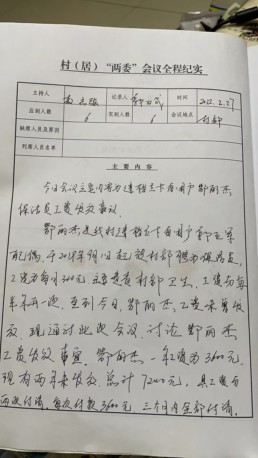 村（居）“两委”会议全程纪实
主持人 记录人 时间 2022.2.27
应到人数 6 实到人数 6 会议地点 村部
缺席人员及原因
列席人员名单
主要内容
今日会议主要内容为建档立卡贫困户鄂丽杰
保洁员工资发放事议
鄂丽杰是我村建档立卡贫困户
配偶，于2019年9月1日起被村部聘为保洁员，
工资为每月300元 主要负责村部卫生，工资为每
年年开一次，直到今日，鄂丽杰工资未曾发
放，现通过此次会议，讨论鄂丽杰
工资发放事宜，鄂丽杰一年工资为3600元，
现有两年未发放，总计7200元，其工资分
两次付清，每次付款3600元，三个月内全部付清。